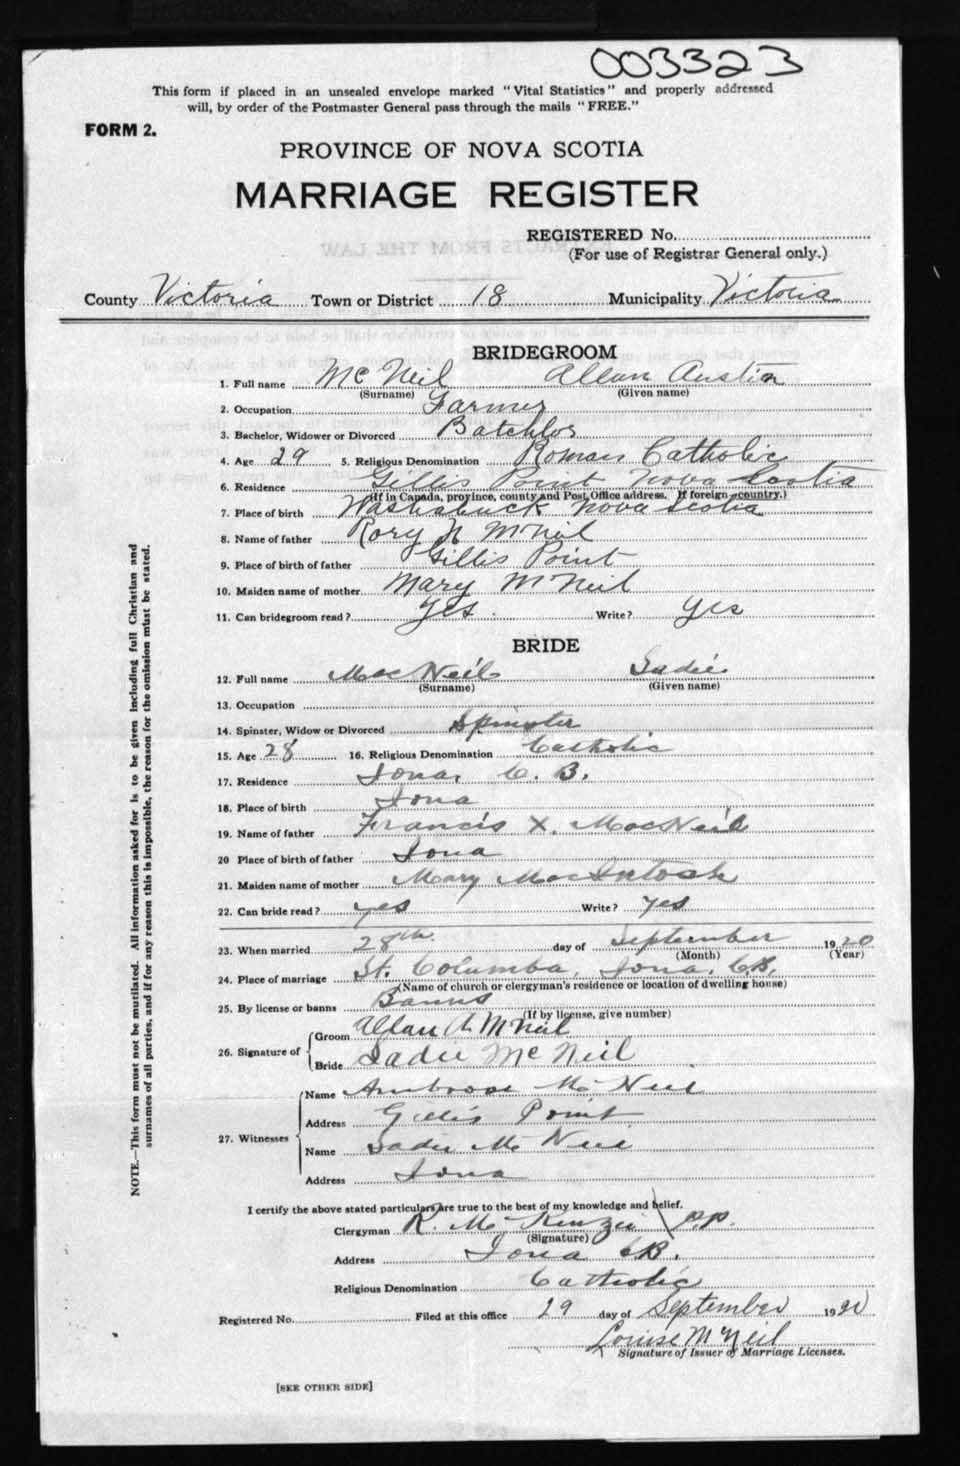 003323
This form if placed in an unsealed envelope marked "Vital Statistics" and properly addressed
will, by order of the Postmaster General pass through the mails "FREE."
FORM 2.
PROVINCE OF NOVA SCOTIA
MARRIAGE REGISTER
REGISTERED No.
(For use of Registrar General only.)
County Victoria Town or District 18 Municipality Victoria
BRIDEGROOM
1. Full name McNeil Allan Austin
(Surname) (Given name)
2. Occupation Farmer
3. Bachelor, Widower or Divorced Batchlor
4. Age 29 5. Religious Denomination Roman Catholic
6. Residence Gillis Point Nova Scotia
(If in Canada, province, county and Post Office address. If foreign country.)
7. Place of birth Washabuck Nova Scotia
8. Name of father Rory N McNeil
9. Place of birth of father Gillis Point
10. Maiden name of mother Mary McNeil
11. Can bridegroom read? Yes. Write? Yes
BRIDE
12. Full name MacNeil Sadie
(Surname) (Given name)
13. Occupation
14. Spinster, Widow or Divorced Spinster
15. Age 28 16. Religious Denomination Catholic
17. Residence Iona, C. B.
18. Place of birth Iona
19. Name of father Francis X. MacNeil
20 Place of birth of father Iona
21. Maiden name of mother Mary MacIntosh
22. Can bride read? yes Write? yes
23. When married 28th day of September 1920
(Month) (Year)
24. Place of marriage St. Columba, Iona, C.B.
(Name of church or clergyman's residence or location of dwelling house)
25. By license or banns Banns
(If by license, give number)
26. Signature of Groom Allan A. McNeil
Bride Sadie McNeil
27. Witnesses Name Ambrose McNeil
Address Gillis Point
Name Sadie McNeil
Address Iona
I certify the above stated particulars are true to the best of my knowledge and belief.
Clergyman R. McKenzie P.P.
(Signature)
Address Iona C.B.
Religious Denomination Catholic
Registered No. Filed at this office 29 day of September 1920
Louise McNeil
Signature of Issuer of Marriage Licenses.
[SEE OTHER SIDE]
NOTE.—This form must not be mutilated. All information asked for is to be given including full Christian and
surnames of all parties, and if for any reason this is impossible, the reason for the omission must be stated.